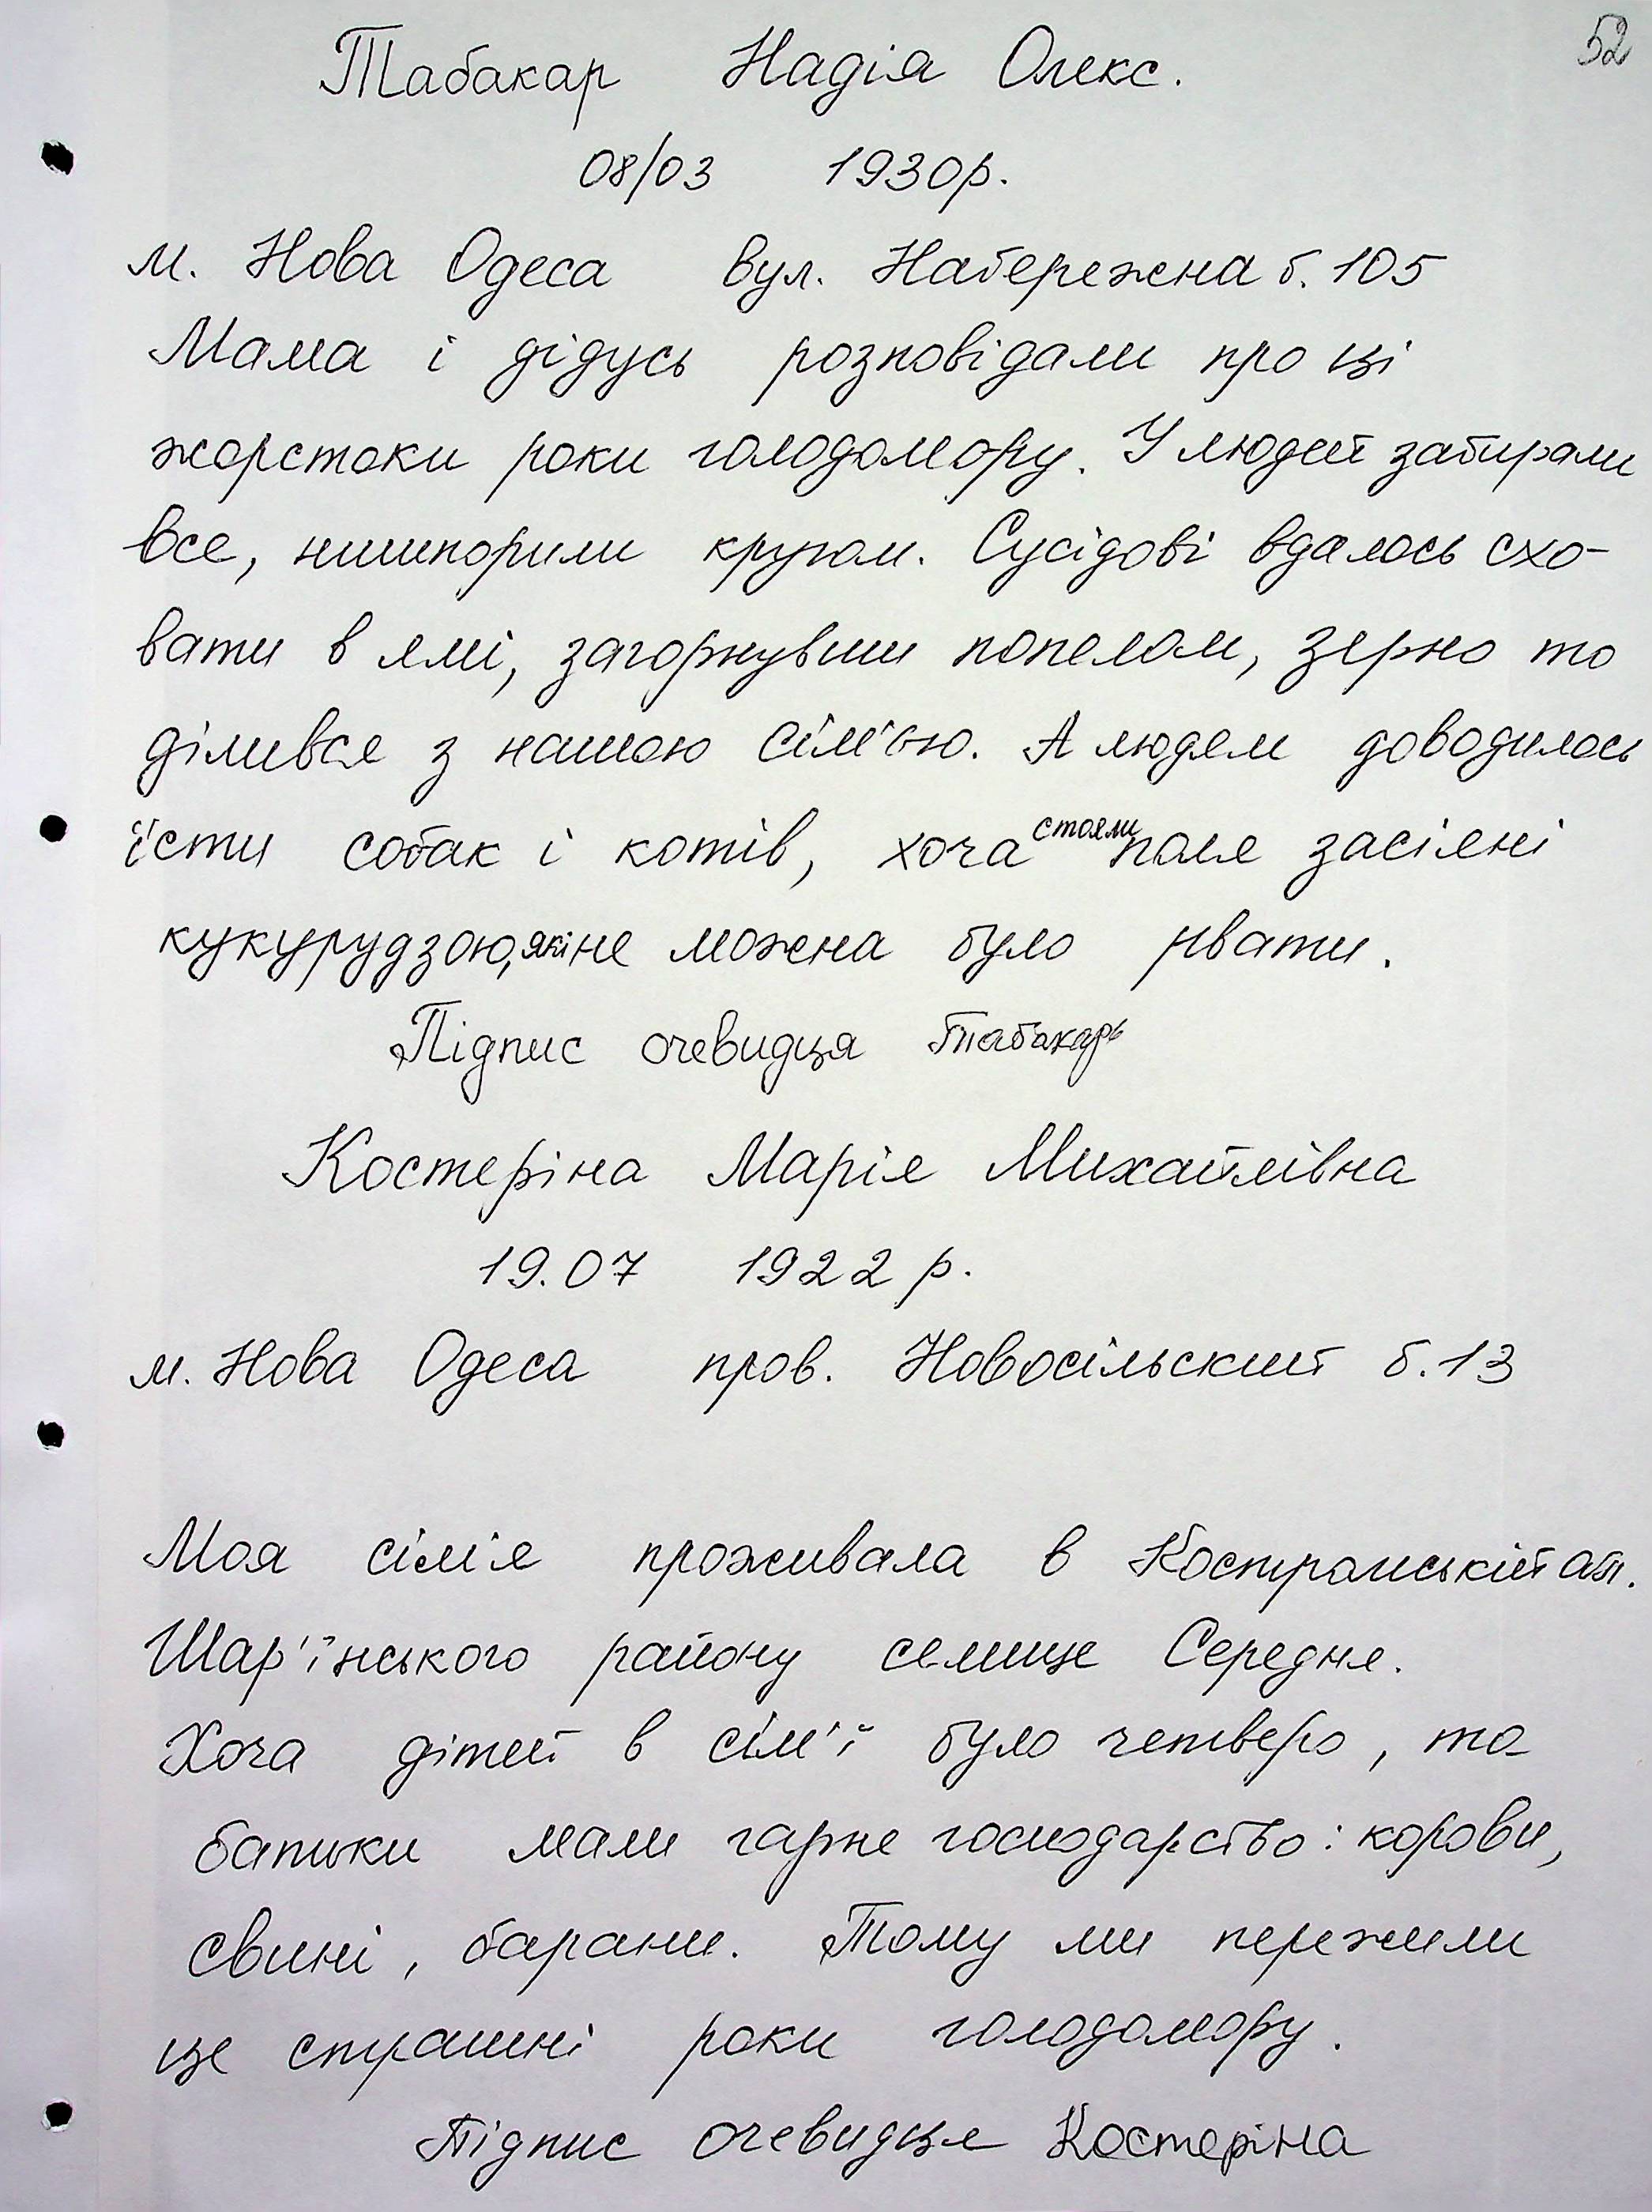 52
Табакар Надія Олекс.
08/03 1930р.
м. Нова Одеса вул. Набережна б. 105
Мама і дідусь розповідали про ці
жорстоки роки голодомору. У людей забирали
все, нишпорили кругом. Сусідові вдалось схо-
вати в ямі, загорнувши попелом, зерно то
ділився з нашою сім'єю. А людям доводилось
їсти собак і котів, хоча стояли поля засіяні
кукурудзою, які не можна було рвати.
Підпис очевидця Табакарь
Костеріна Марія Михайлівна
19.07 1922 р.
м. Нова Одеса пров. Новосільский б. 13
Моя сім'я проживала в Костромській обл.
Шар'їнського району селище Середня.
Хоча дітей в сім'ї було четверо, то
батьки мали гарне господарство: корови,
свині, барани. Тому ми пережили
це страшні роки голодомору.
Підпис очевидця Костеріна